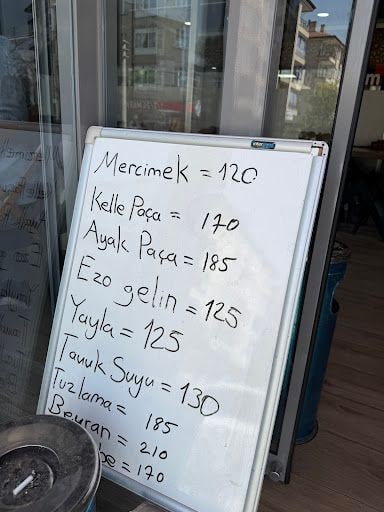 Mercimek = 120
Kelle Paça = 170
Ayak Paça = 185
Ezo gelin = 125
Yayla = 125
Tavuk Suyu = 130
Tuzlama = 185
Beyran = 210
= 170